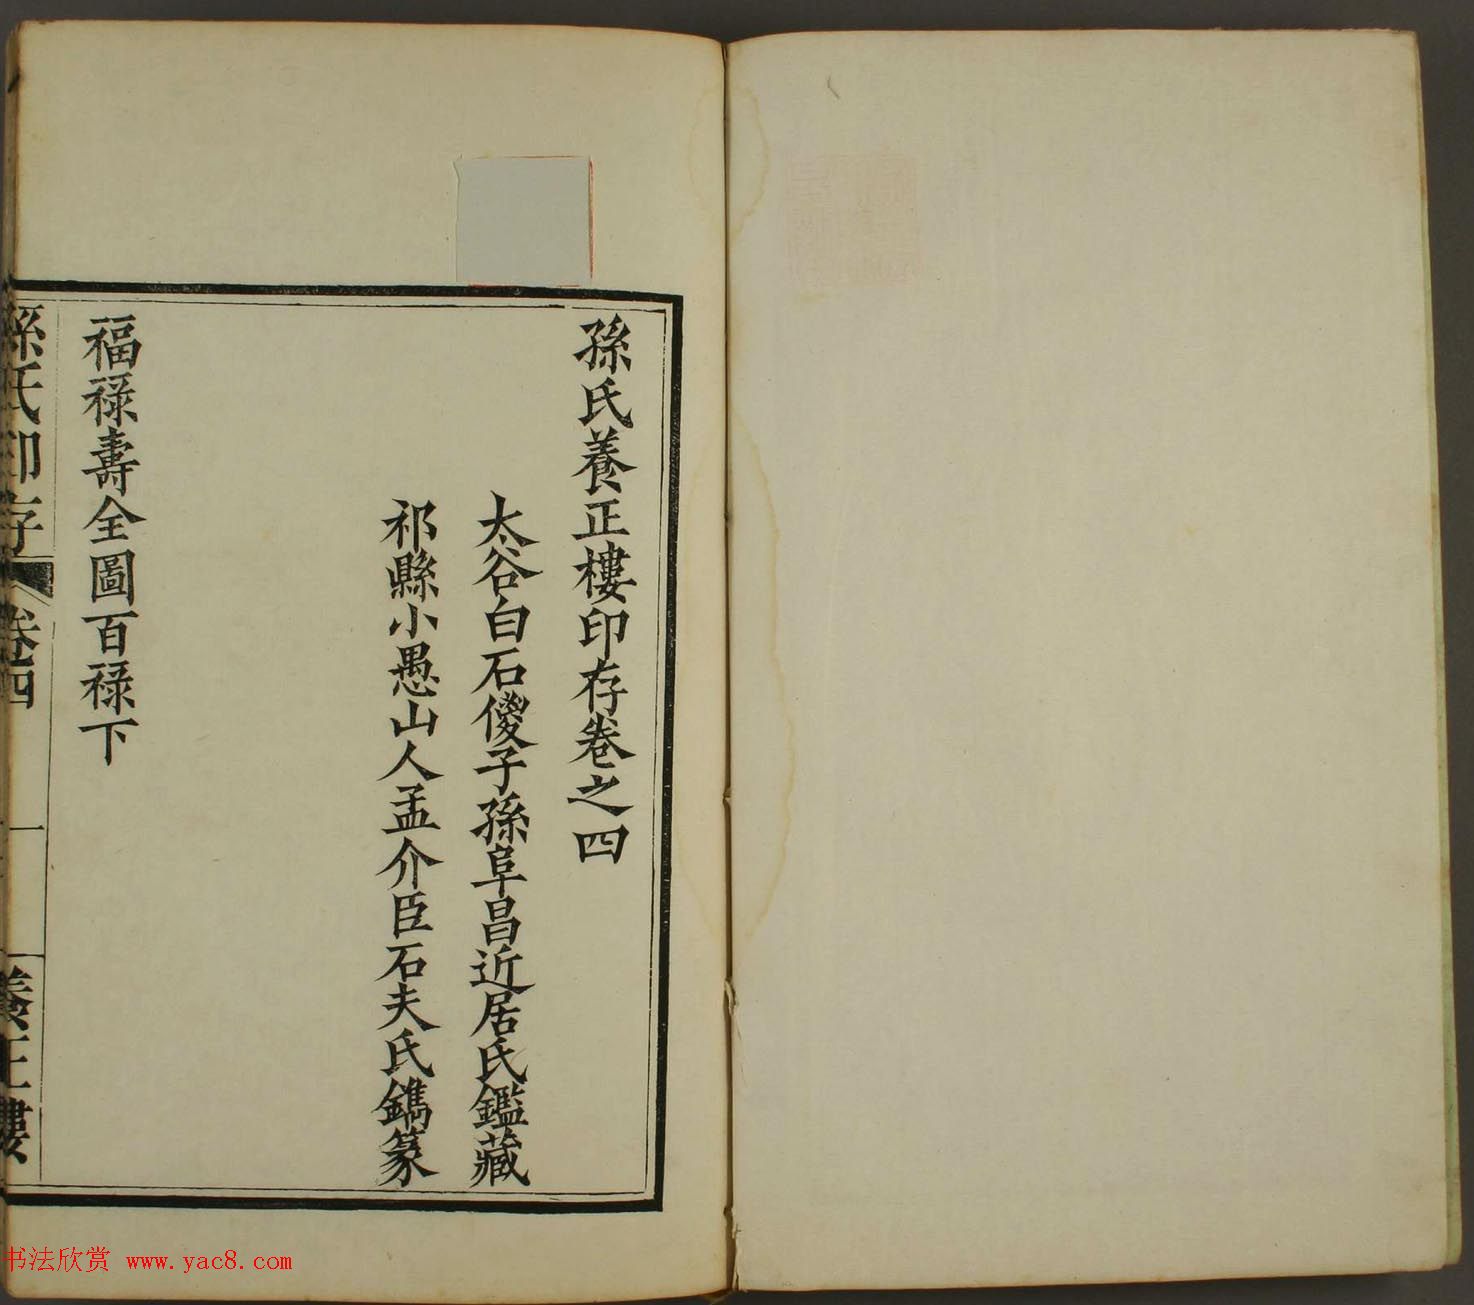 孫氏養正樓印存卷之四
太谷白石傻子孫阜昌近居氏鑑藏
祁縣小愚山人孟介臣石夫氏鐫篆
福祿壽全圖百祿下
孫氏印存 卷四 一 養正樓
书法欣赏 www.yac8.com